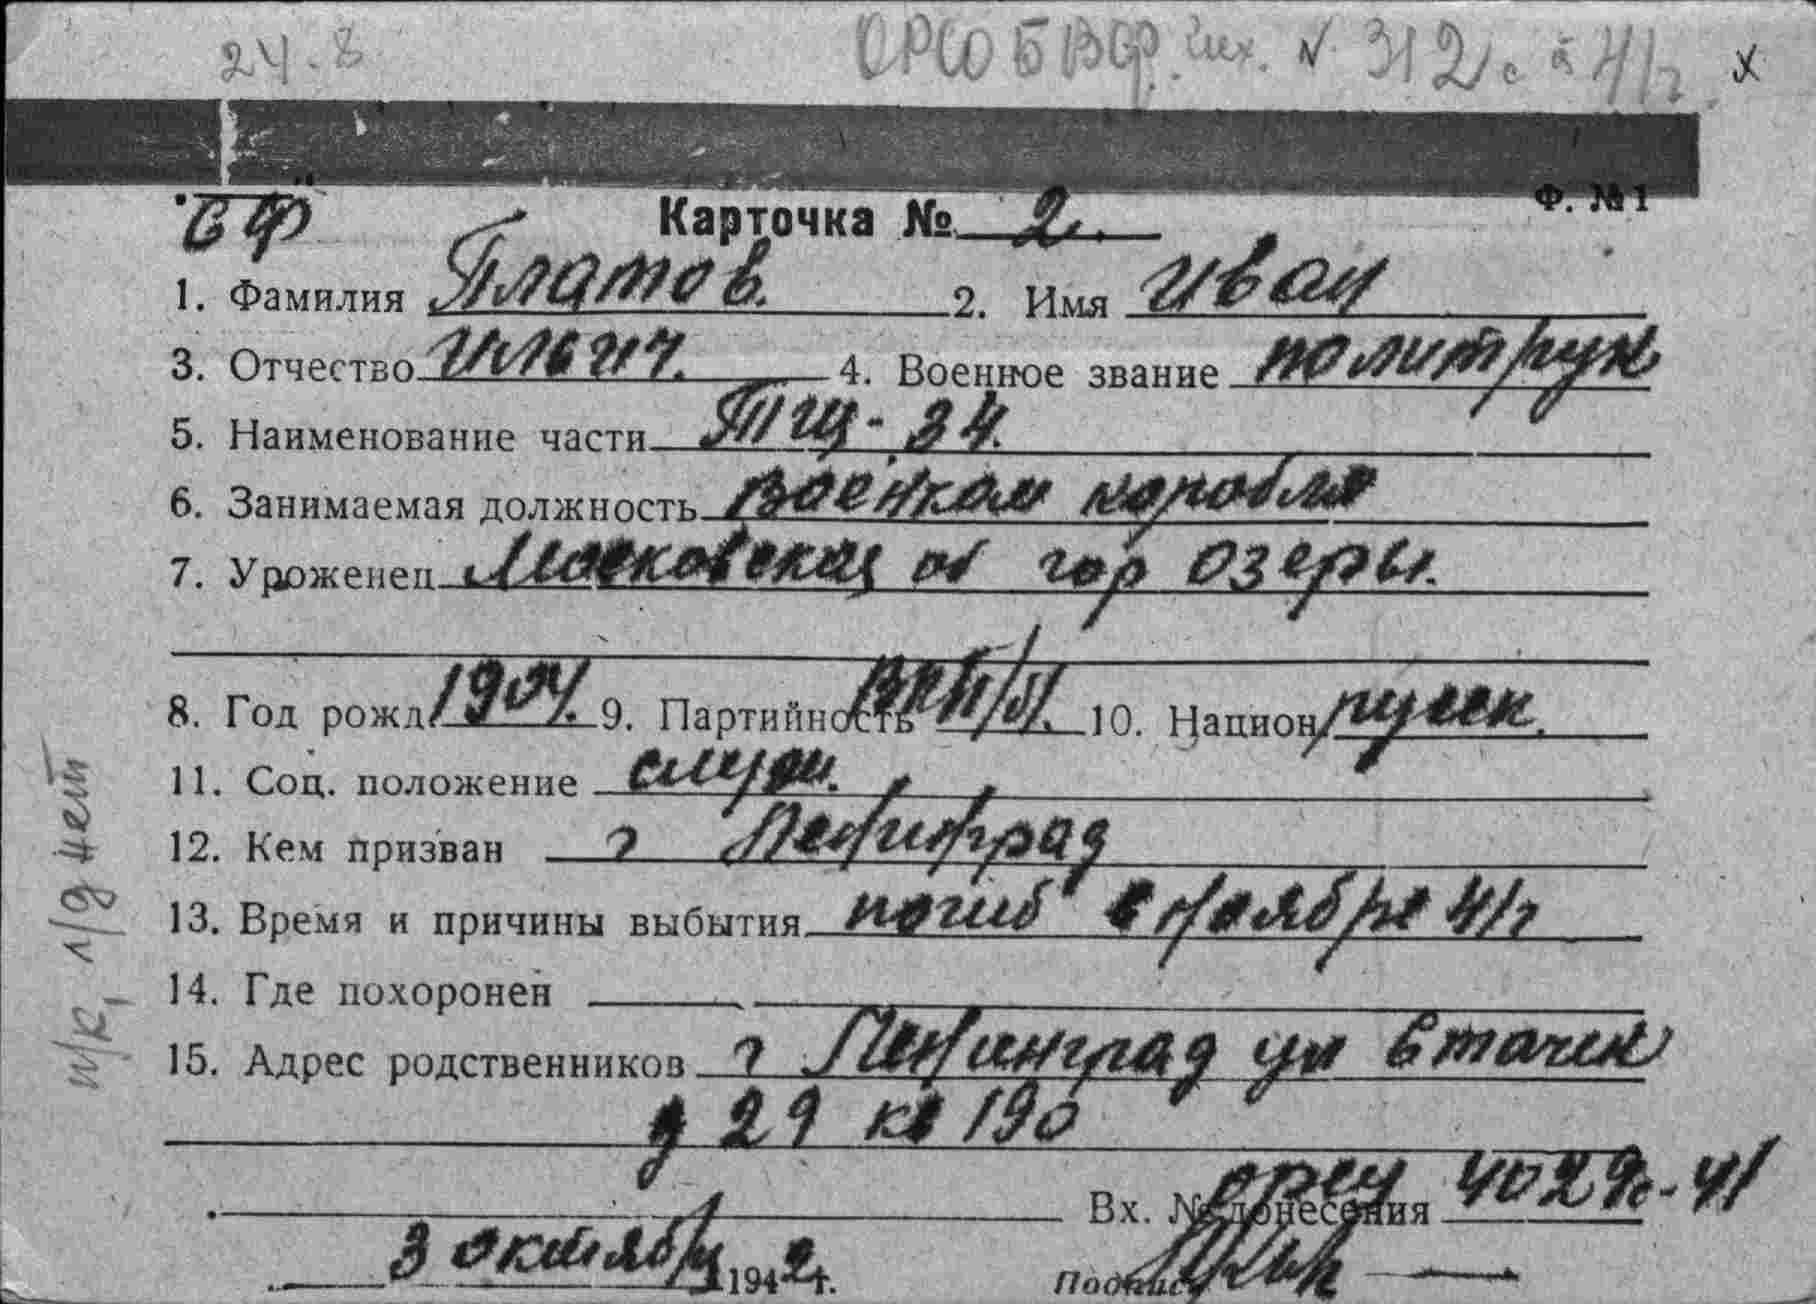 24.8 ОРСО БВФ. исх. № 312с 41г х
Ф. №1
"СФ" Карточка № 2.
1. Фамилия Платов. 2. Имя Иван
3. Отчество Ильич. 4. Военное звание политрук
5. Наименование части ТЩ-34.
6. Занимаемая должность Военком корабля
7. Уроженец Московская об гор Озеры.
8. Год рожд. 1904. 9. Партийность ВКП/б/. 10. Национ. русск.
11. Соц. положение служ.
12. Кем призван г Ленинград
13. Время и причины выбытия погиб в ноябре 41г
14. Где похоронен
15. Адрес родственников г Ленинград ул Стачек
д 29 кв 190
Вх. № донесения 4029с-41
3 октября 1942г.
Подпись
л/д нет